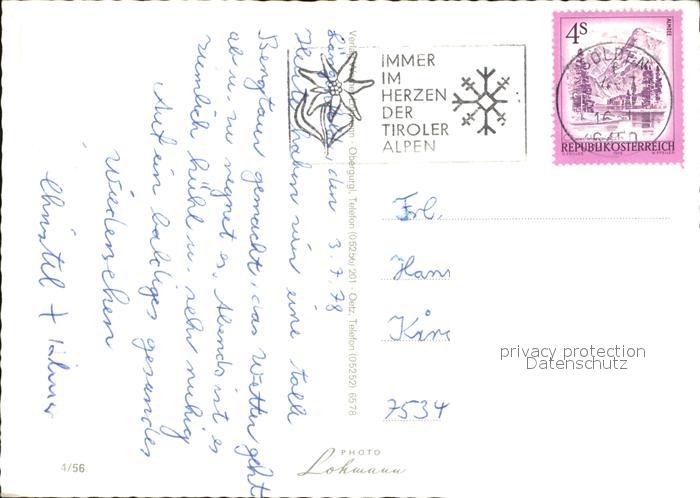 4S
ALMSEE
SÖLDEN
6450
REPUBLIK ÖSTERREICH
IMMER
IM
HERZEN
DER
TIROLER
ALPEN
Längenfeld, den 3.7.78
Heute haben wir eine tolle
Bergtour gemacht, das Wetter geht
ab u. zu regnet es. Abends ist es
ziemlich kühl u. sehr ruhig
Auf ein baldiges gesundes
Wiedersehen
Christel + Hilmar
Obergurgl, Telefon (05256) 201 - Oetz, Telefon (05252) 6578
Frl.
Hann
7534
privacy protection
Datenschutz
PHOTO
Lohmann
4/56